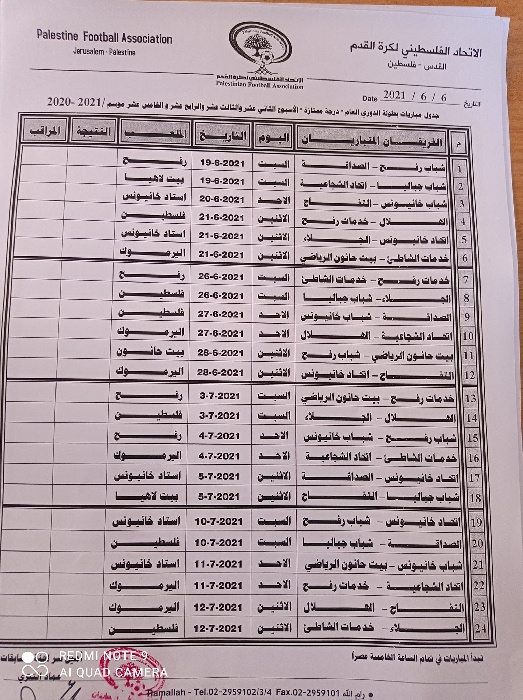 Palestine Football Association
Jerusalem - Palestine
الاتحاد الفلسطيني لكرة القدم
القدس - فلسطين
الاتحاد الفلسطيني لكرة القدم
Palestinian Football Association
Date 2021 / 6 / 6 التاريخ
جدول مباريات بطولة الدوري العام - درجة ممتازة - الأسبوع الثاني عشر والثالث عشر والرابع عشر والخامس عشر موسم / 2021-2020
م الفريقان المتباريان اليوم التاريخ الملعب النتيجة المراقب
1 شباب رفح - الصداقة السبت 19-6-2021 رفح
2 شباب جباليا - اتحاد الشجاعية السبت 19-6-2021 بيت لاهيا
3 شباب خانيونس - التفاح الاحد 20-6-2021 استاد خانيونس
4 الهلال - خدمات رفح الاثنين 21-6-2021 فلسطين
5 اتحاد خانيونس - الجلاء الاثنين 21-6-2021 استاد خانيونس
6 خدمات الشاطئ - بيت حانون الرياضي الاثنين 21-6-2021 اليرموك
7 خدمات رفح - خدمات الشاطئ السبت 26-6-2021 رفح
8 الجلاء - شباب جباليا السبت 26-6-2021 فلسطين
9 الصداقة - شباب خانيونس الاحد 27-6-2021 فلسطين
10 اتحاد الشجاعية - الهلال الاحد 27-6-2021 اليرموك
11 بيت حانون الرياضي - شباب رفح الاثنين 28-6-2021 بيت حانون
12 التفاح - اتحاد خانيونس الاثنين 28-6-2021 اليرموك
13 خدمات رفح - بيت حانون الرياضي السبت 3-7-2021 رفح
14 الهلال - الجلاء السبت 3-7-2021 فلسطين
15 شباب رفح - شباب خانيونس الاحد 4-7-2021 رفح
16 خدمات الشاطئ - اتحاد الشجاعية الاحد 4-7-2021 اليرموك
17 اتحاد خانيونس - الصداقة الاثنين 5-7-2021 استاد خانيونس
18 شباب جباليا - التفاح الاثنين 5-7-2021 بيت لاهيا
19 اتحاد خانيونس - شباب رفح السبت 10-7-2021 استاد خانيونس
20 الصداقة - شباب جباليا السبت 10-7-2021 فلسطين
21 شباب خانيونس - بيت حانون الرياضي الاحد 11-7-2021 استاد خانيونس
22 اتحاد الشجاعية - خدمات رفح الاحد 11-7-2021 اليرموك
23 التفاح - الهلال الاثنين 12-7-2021 اليرموك
24 الجلاء - خدمات الشاطئ الاثنين 12-7-2021 فلسطين
تبدأ المباريات في تمام الساعة الخامسة عصرا
REDMI NOTE 9
AI QUAD CAMERA
Ramallah - Tel.02-2959102/3/4 Fax.02-2959101 رام الله